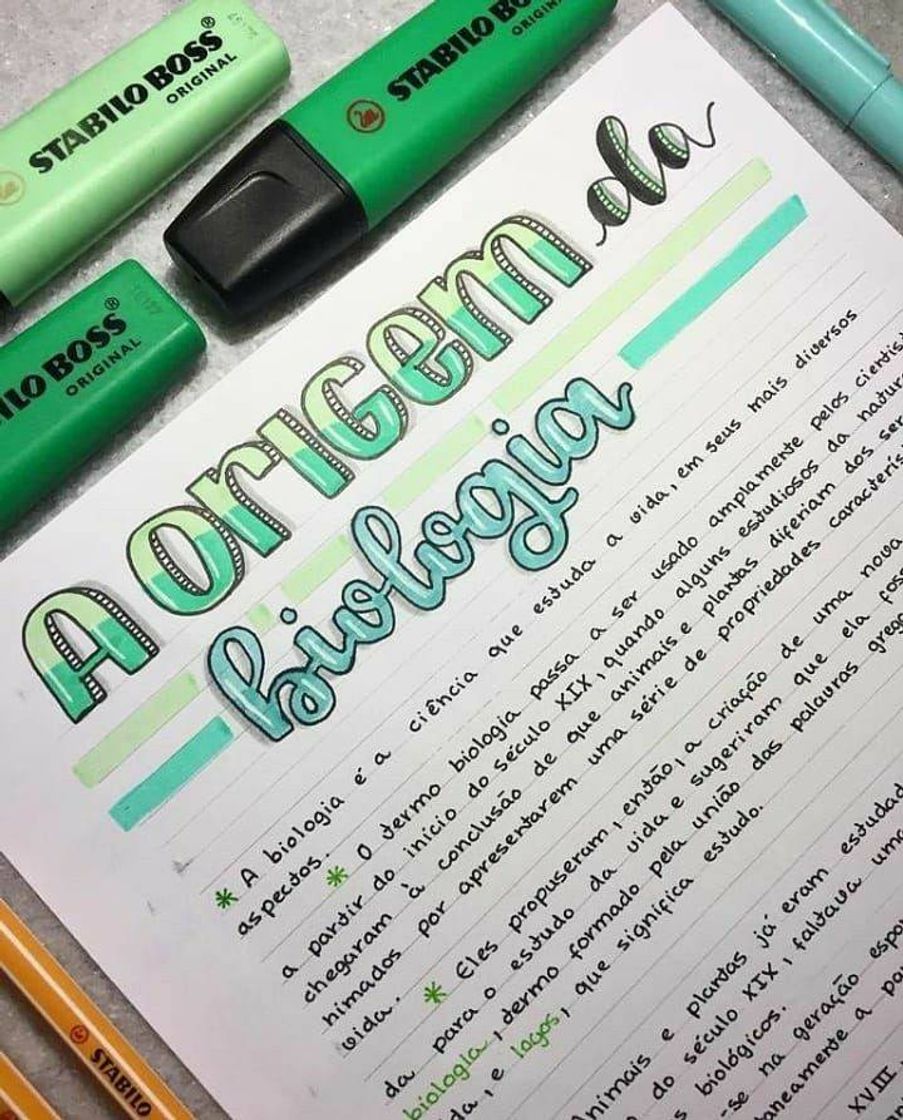 STABILO BOSS®
ORIGINAL
STABILO BOSS
ORIGINAL
BOSS®
ORIGINAL
A origem da
biologia
* A biologia é a ciência que estuda a vida, em seus mais diversos
aspectos.
* O termo biologia passa a ser usado amplamente pelos
a partir do início do século XIX, quando alguns estudiosos da
chegaram à conclusão de que animais e plantas diferiam dos
nimados por apresentarem uma série de propriedades
vida.
* Eles propuseram, então, a criação de uma nova
da para o estudo da vida e sugeriram que ela
biologia, termo formado pela união das palavras
e lagos, que significa estudo.
Animais e plantas já eram
do século XIX, faltava
biológicos.
-se na geração
a
XVIII
STABILO